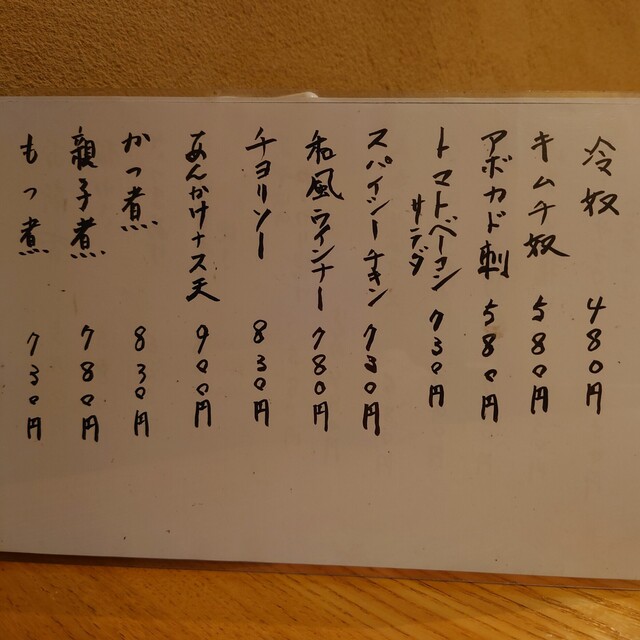 冷奴 480円
キムチ奴 580円
アボカド刺 580円
トマトベーコン
サラダ 730円
スパイシーチキン 730円
和風ウインナー 780円
チョリソー 830円
あんかけナス天 900円
かつ煮 830円
親子煮 780円
もつ煮 730円